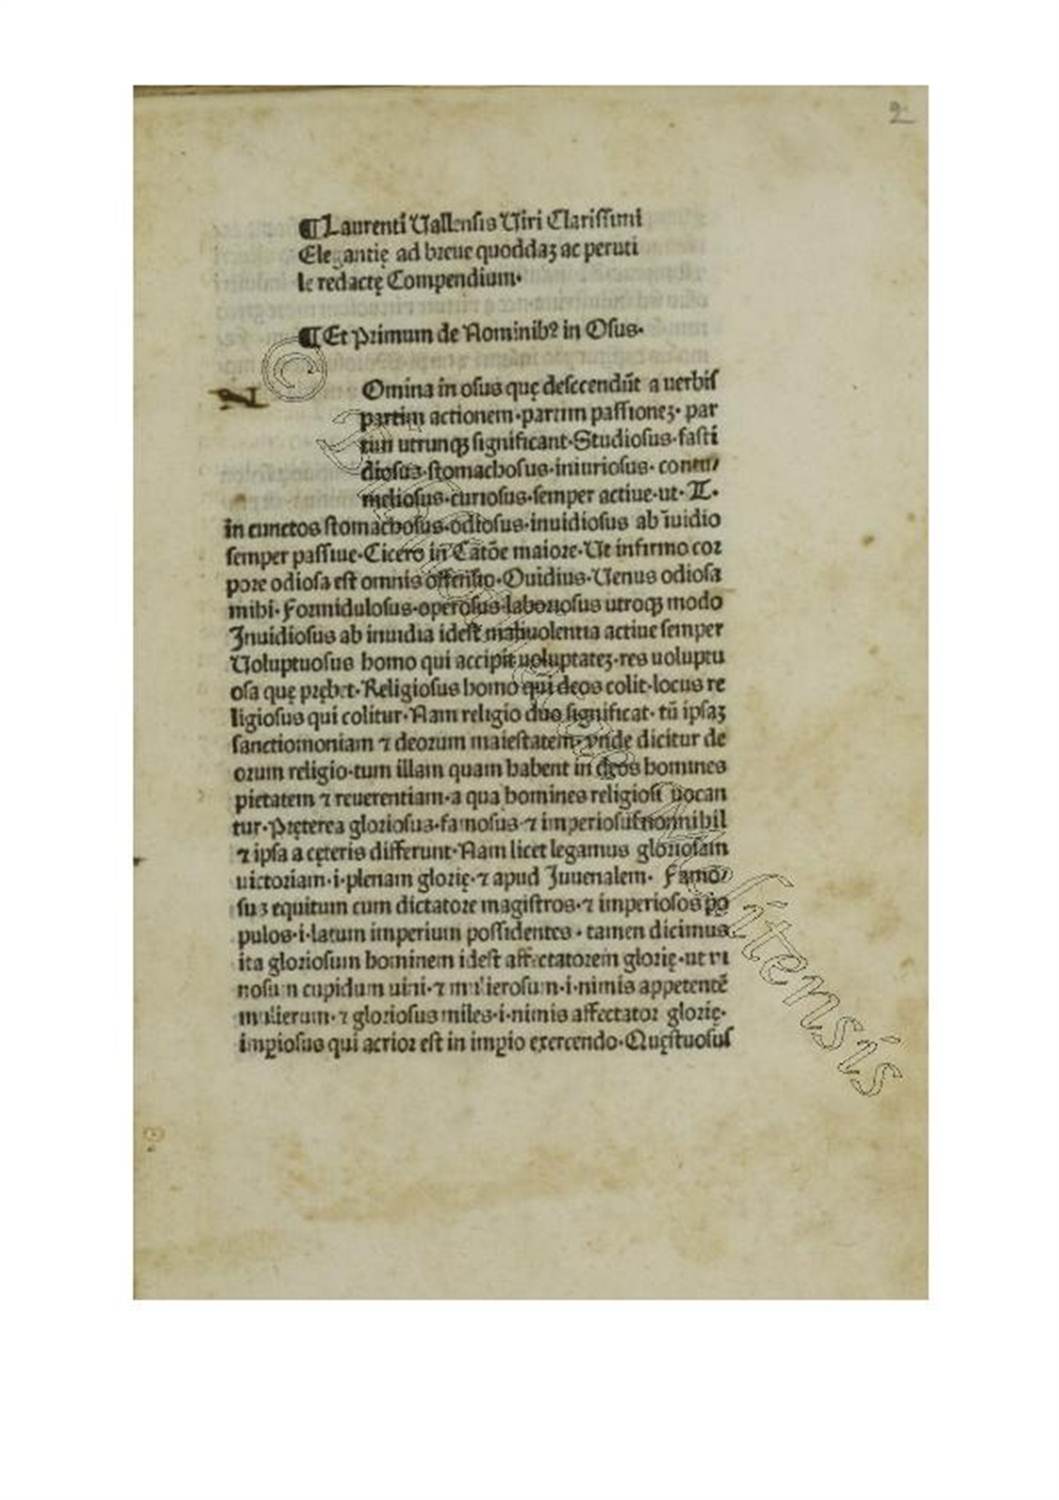 2
¶Laurenti Uallensis Uiri Clarissimi
Elegantię ad breue quoddaꝫ ac peruti
le redactę Compendium·
¶Et Primum de Nominibꝰ in Osus·
N Omina in osus quę desccendūt a uerbis
partim actionem·partim passioneꝫ· par
tim utrunqꝫ significant·Studiosus·fasti
diosus·stomachosus·iniuriosus· contu/
meliosus·curiosus·semper actiue·ut· T·
in cunctos stomachosus·odiosus·inuidiosus ab īuidio
semper passiue·Cicero in Catōe maiore·Ut infirmo cor
pore odiosa est omnis offensio·Ouidius·Uenus odiosa
mihi·Formidulosus·operosus·laboriosus utroqꝫ modo
Inuidiosus ab inuidia idest maliuolentia actiue semper
Uoluptuosus homo qui accipit uoluptateꝫ·res uoluptu
osa quę prębet·Religiosus homo qui deos colit·locus re
ligiosus qui colitur·Nam religio duo significat· tū ipsaꝫ
sanctiomoniam ⁊ deorum maiestatem·vnde dicitur de
orum religio·tum illam quam habent in deos homines
pietatem ⁊ reuerentiam·a qua homines religiosi uocan
tur·Pręterea gloriosus·famosus·⁊ imperiosus nonnihil
⁊ ipsa a cęteris differunt·Nam licet legamus gloriosam
uictoriam·i·plenam glorię·⁊ apud Juuenalem· Famo/
suꝫ equitum cum dictatore magistros·⁊ imperiosos po
pulos·i·latum imperium possidentes· tamen dicimus
ita gloriosum hominem idest affectatorem glorię·ut vi
nosum cupidum uini·⁊ mulierosum·i·nimis appetentē
mulierum·⁊ gloriosus miles·i·nimis affectator glorię·
imꝑiosus qui acrior est in imꝑio exercendo·Quęstuosus